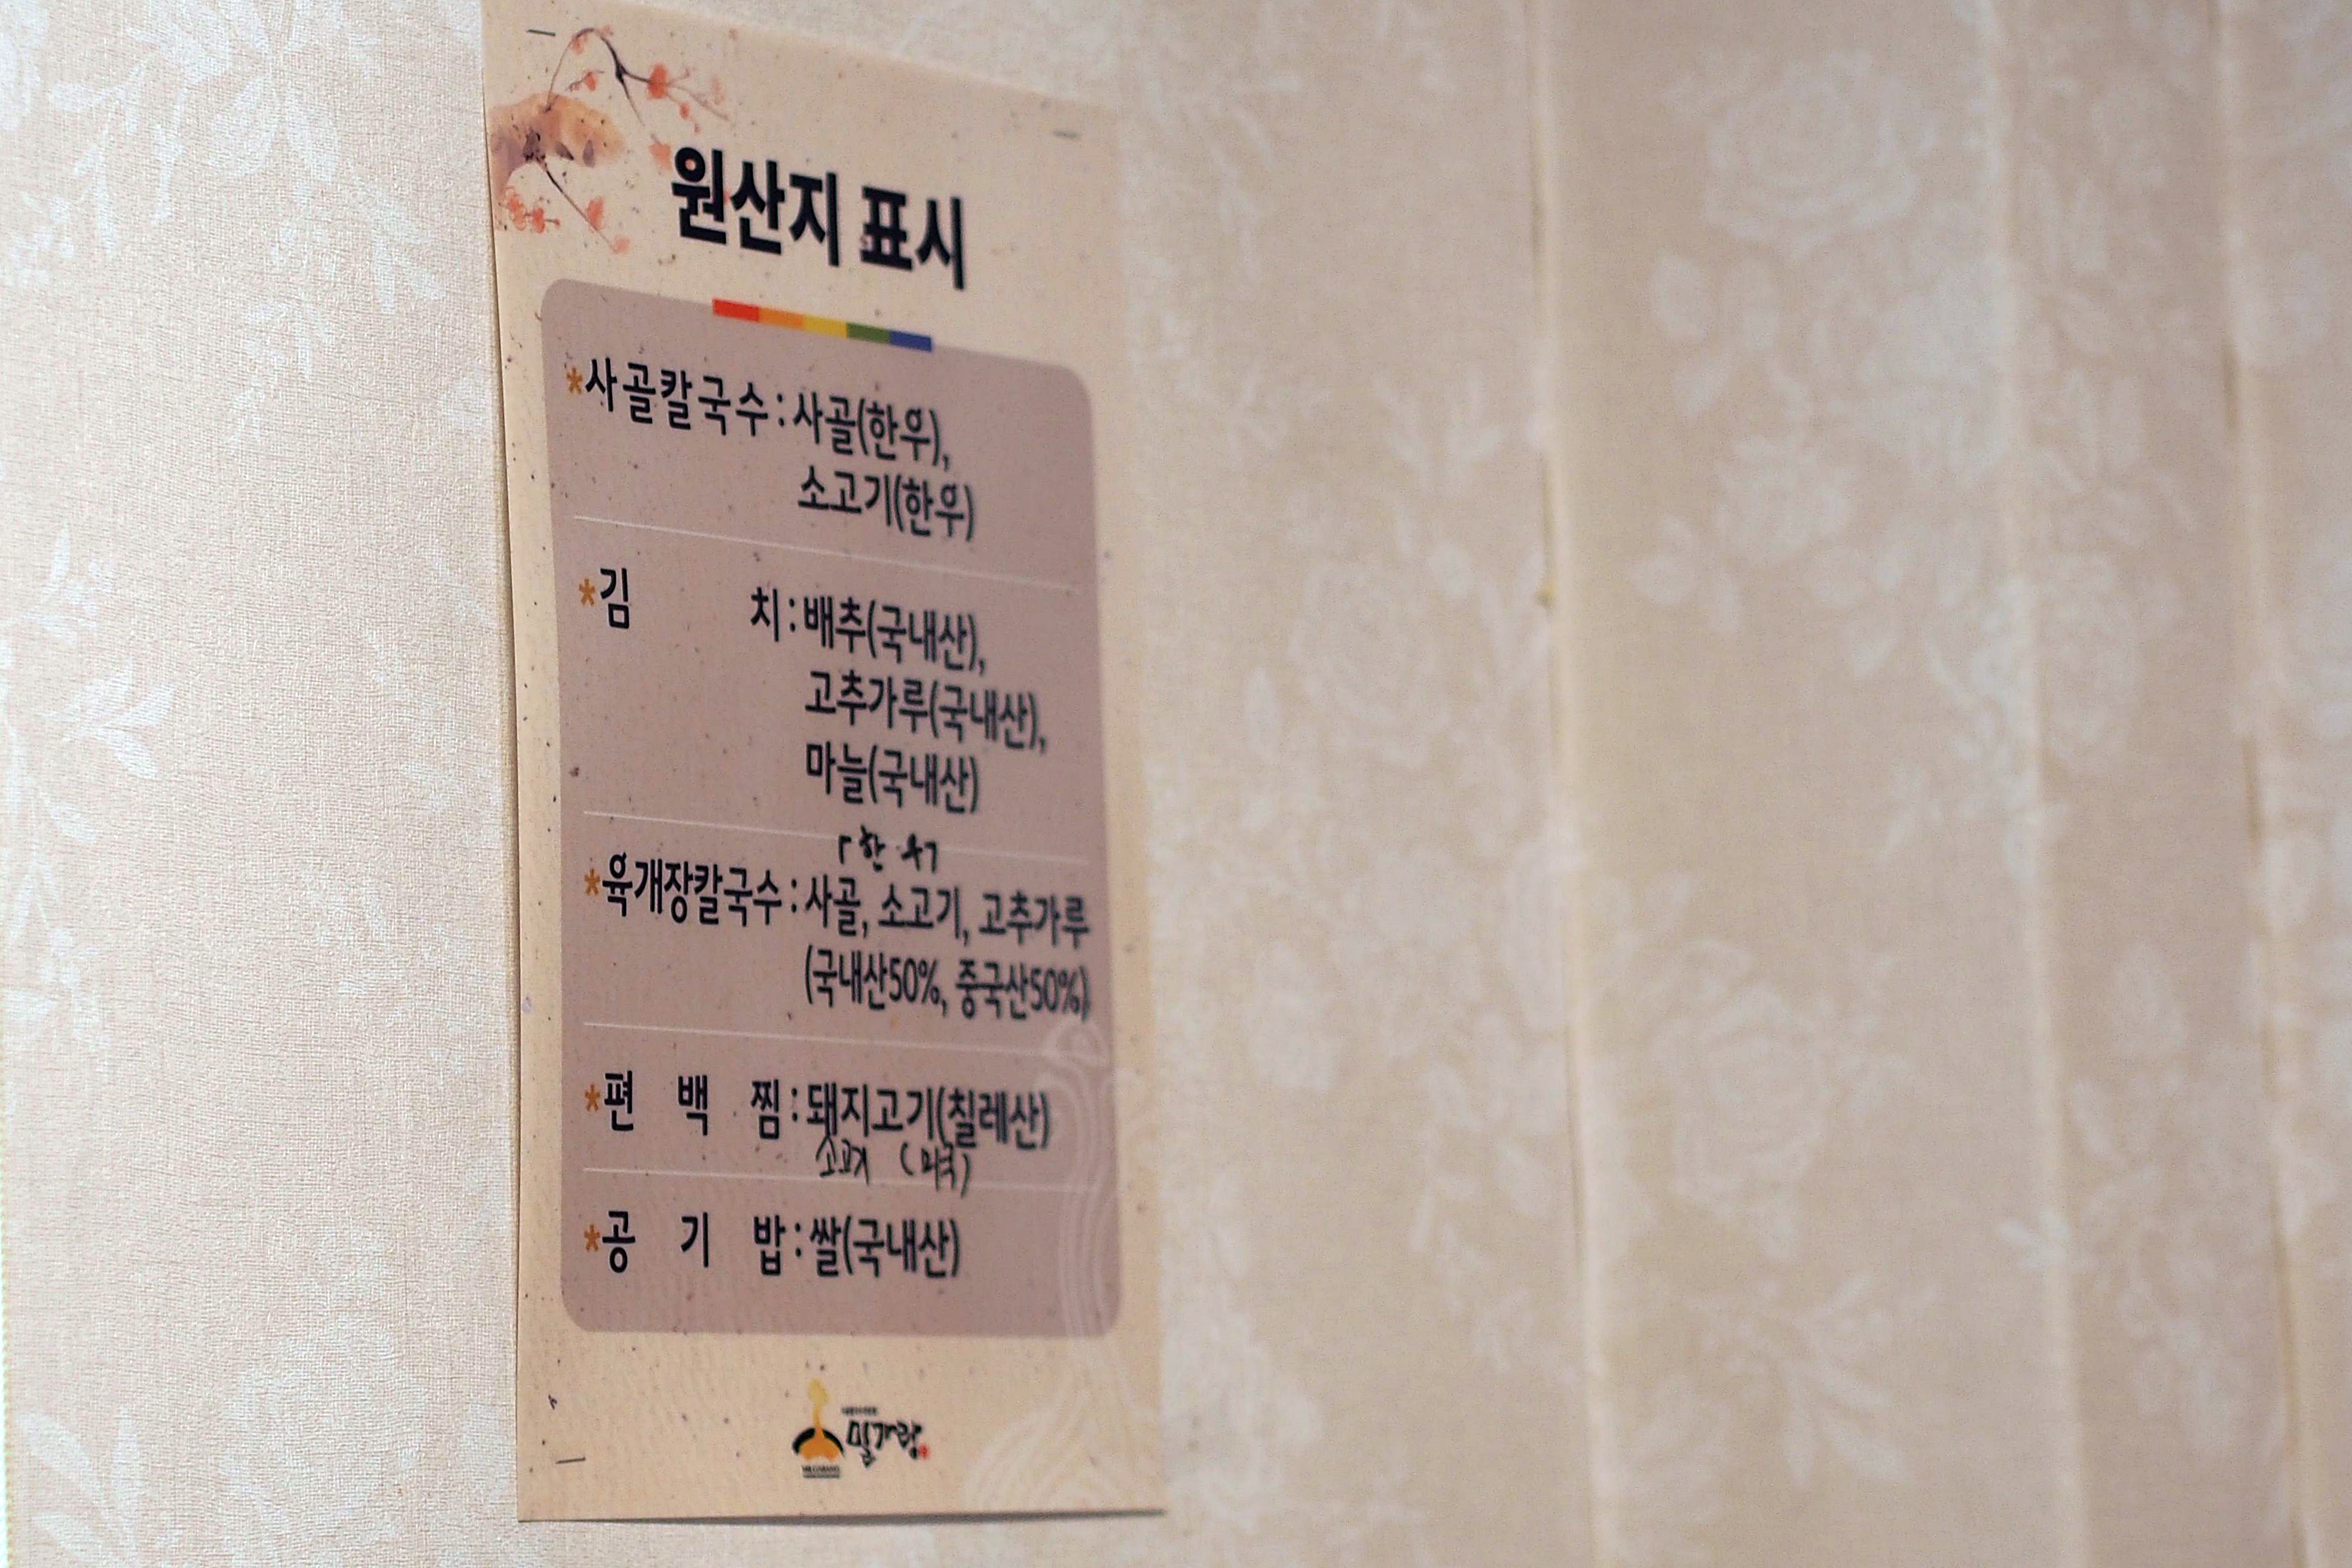 원산지 표시
*사골칼국수 : 사골(한우),
소고기(한우)
*김 치 : 배추(국내산),
고추가루(국내산),
마늘(국내산)
「한 우」
*육개장칼국수 : 사골, 소고기, 고추가루
(국내산50%, 중국산50%)
*편 백 찜 : 돼지고기(칠레산)
소고기 (미국)
*공 기 밥 : 쌀(국내산)
밀가랑